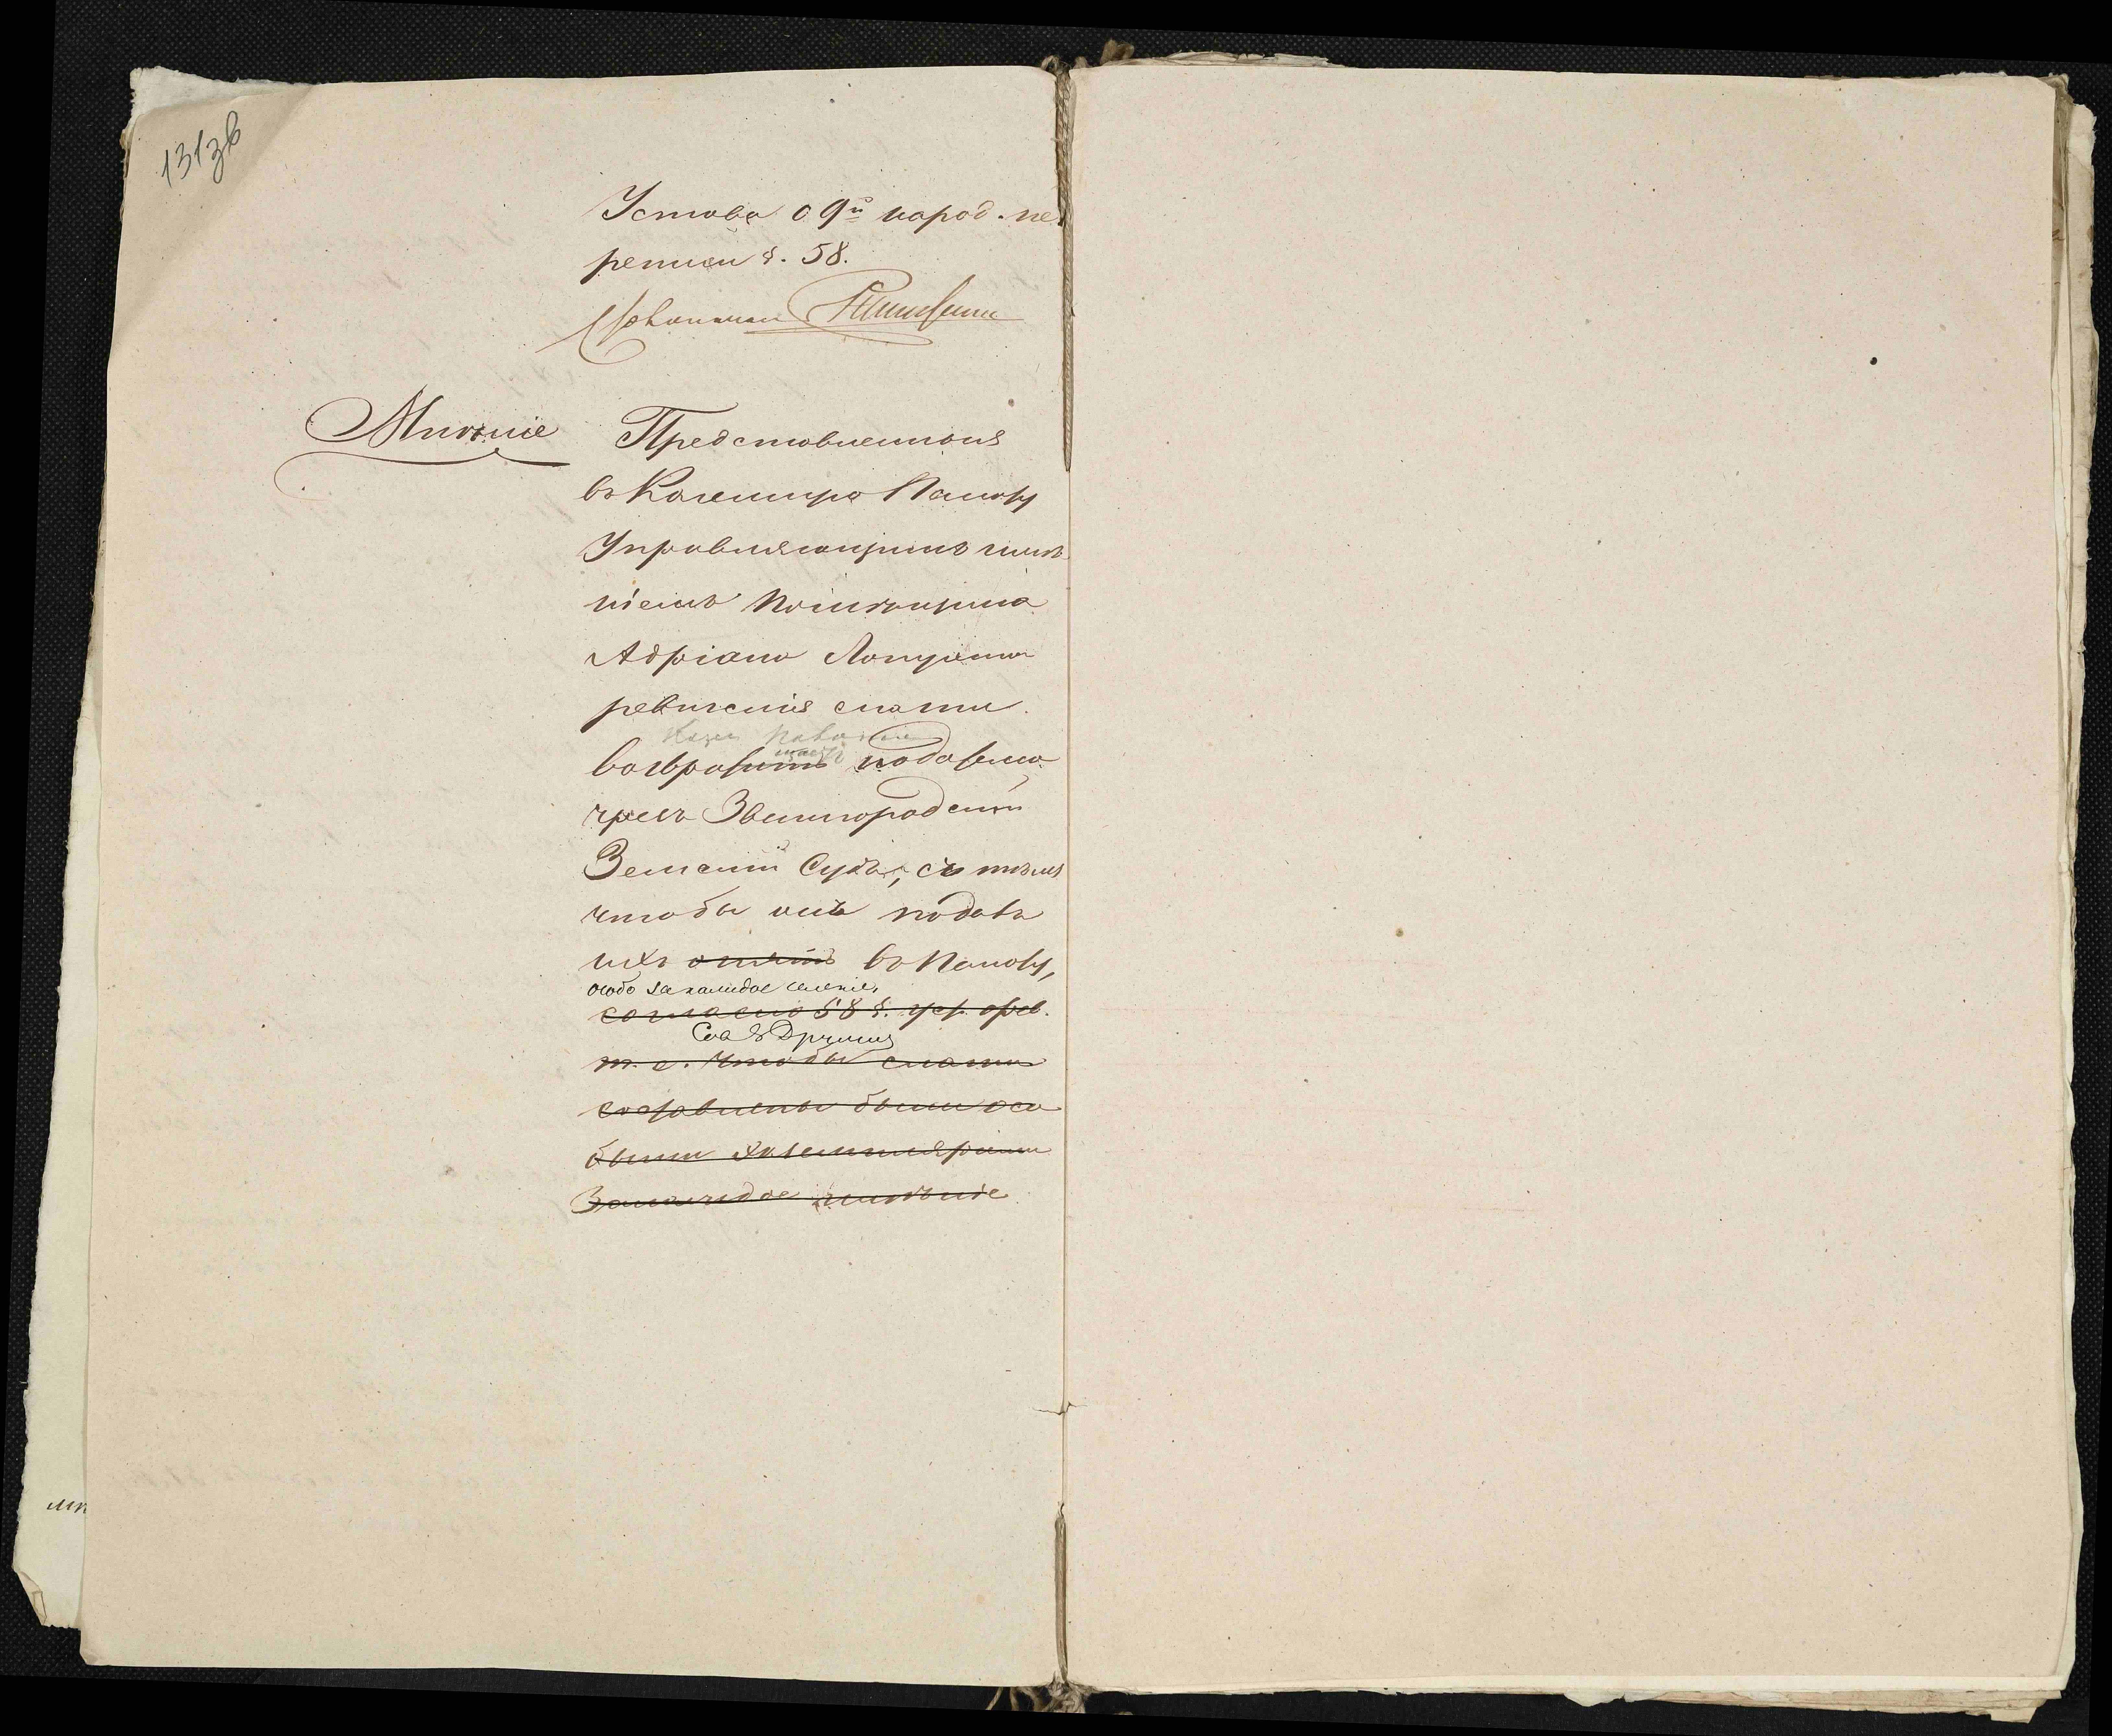 131зв
Устава о 9й народ. пе
реписи §. 58.
Мнѣніе
Представленныя
въ Казенную Палату
Управляющимъ имѣ
ніемъ Помѣщика
Адріана Лопухина
ревизскія сказки
возвратить подателю
чрезъ Звенигородскій
Земскій Судъ, съ тѣмъ
чтобы онъ подалъ
ихъ опять въ Палату,
особо за каждое селеніе.
согласно 58 §. уст. о рев.
т. е. чтобы сказки
составлены были осо
быми экземплярами
За каждое имѣніе